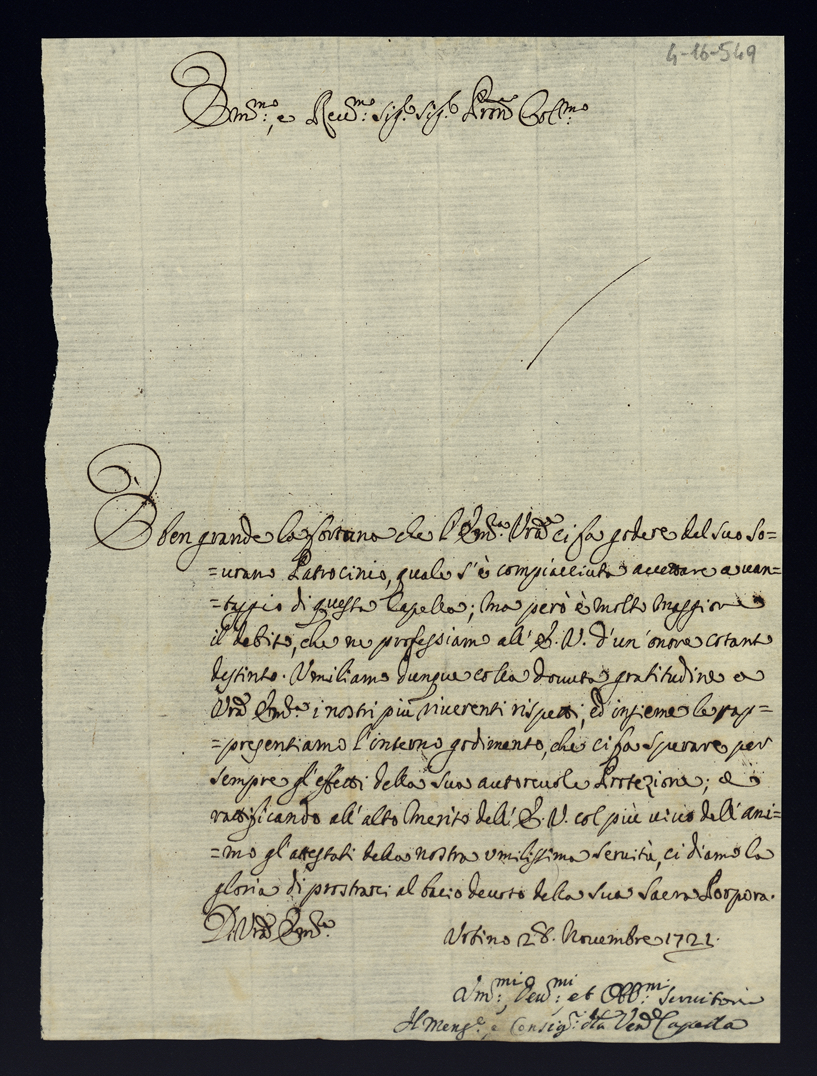 4-16-549
Em.mo: e Reu.mo: Sig.r Sig.r Pron.e Col.mo
È ben grande la fortuna che l'Em.a Vra ci fa godere del suo so=
=urano Patrocinio, quale s'è compiacciuta accettare a uan=
=taggio di questa Capella; ma però è molto maggiore
il debito, che ne professiamo all'E.V. d'un'onore cotanto
destinto. Vmiliamo dunque colla douuta gratitudine a
Vra Em.a i nostri più riuerenti rispetti, ed insieme le rap=
=presentiamo l'interno godimento, che ci fa sperare per
sempre gl'effetti della Sua autoreuole Protezione; e
rattificando all'alto Merito dell'E.V. col più uiuo dell'ani=
=mo gl'attestati della nostra vmilissima Seruitù, ci diamo la
gloria di prostrarci al bacio deuoto della Sua Sacra Porpora.
Di Vra Em.a
Vrbino 28. Nouembre 1721.
Vm.mi: Deu.mi: et Obb.mi: Seruitori
e Consig.ri della Ven. Capella